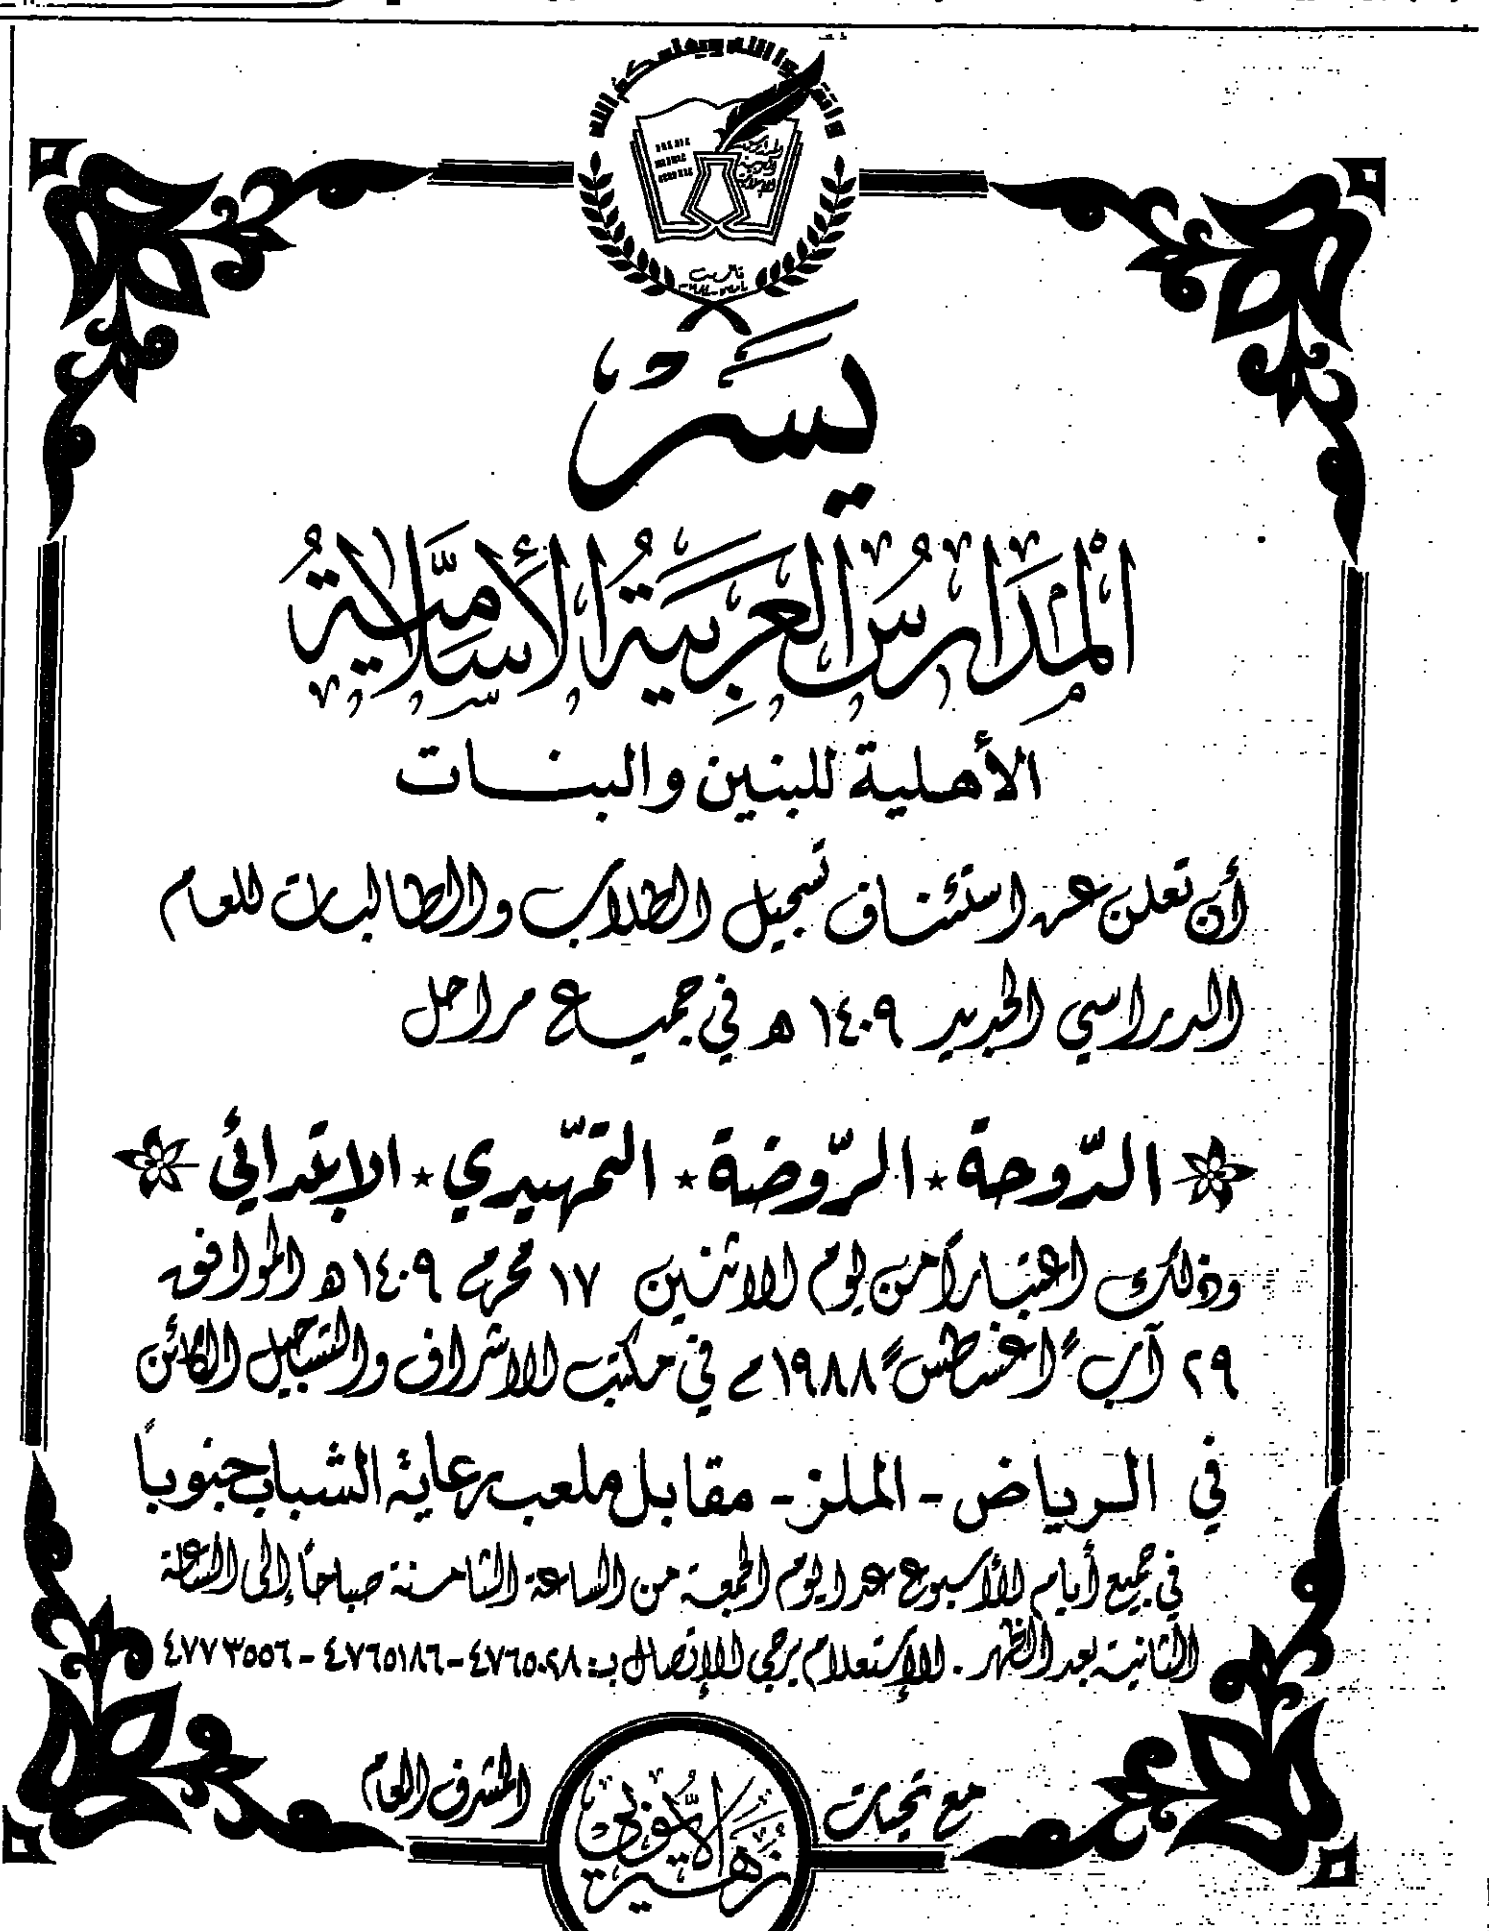 واتقوا الله ويعلمكم الله
يسر
المدارس العربية الأسلامية
الأهلية للبنين والبنات
أن تعلن عن استئناف تسجيل الطلاب والطالبات للعام
الدراسي الجديد ١٤٠٩ هـ في جميع مراحل
الدّوحة ★ الرّوضة ★ التمهيدي ★ الابتدائي
وذلك اعتباراً من يوم الاثنين ١٧ محرم ١٤٠٩ هـ الموافق
٢٩ آب "اغسطس" ١٩٨٨ م في مكتب الاشراف والتسجيل الكائن
في الرياض - الملز - مقابل ملعب رعاية الشباب جنوباً
في جميع أيام الأسبوع عدا يوم الجمعة من الساعة الثامنة صباحاً إلى الساعة
الثانية بعد الظهر . للإستعلام يرجى الإتصال بـ: ٤٧٦٥٠٢٨ - ٤٧٦٥١٨٦ - ٤٧٧٣٥٥٦
مع تحيات
زهير الأيوبي
المشرف العام